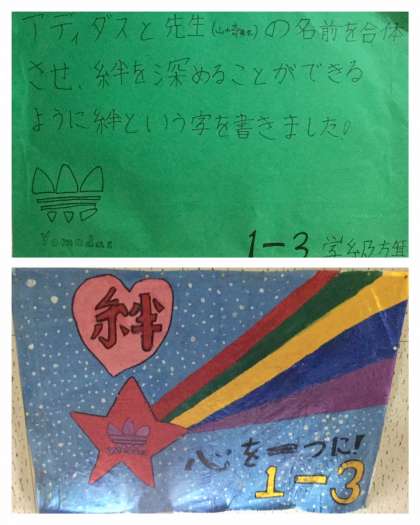 アディダスと先生(山本)の名前を合体
させ、絆を深めることができる
ように絆という字を書きました。
Yamadas
1-3 学級旗
絆
心を一つに!
1-3